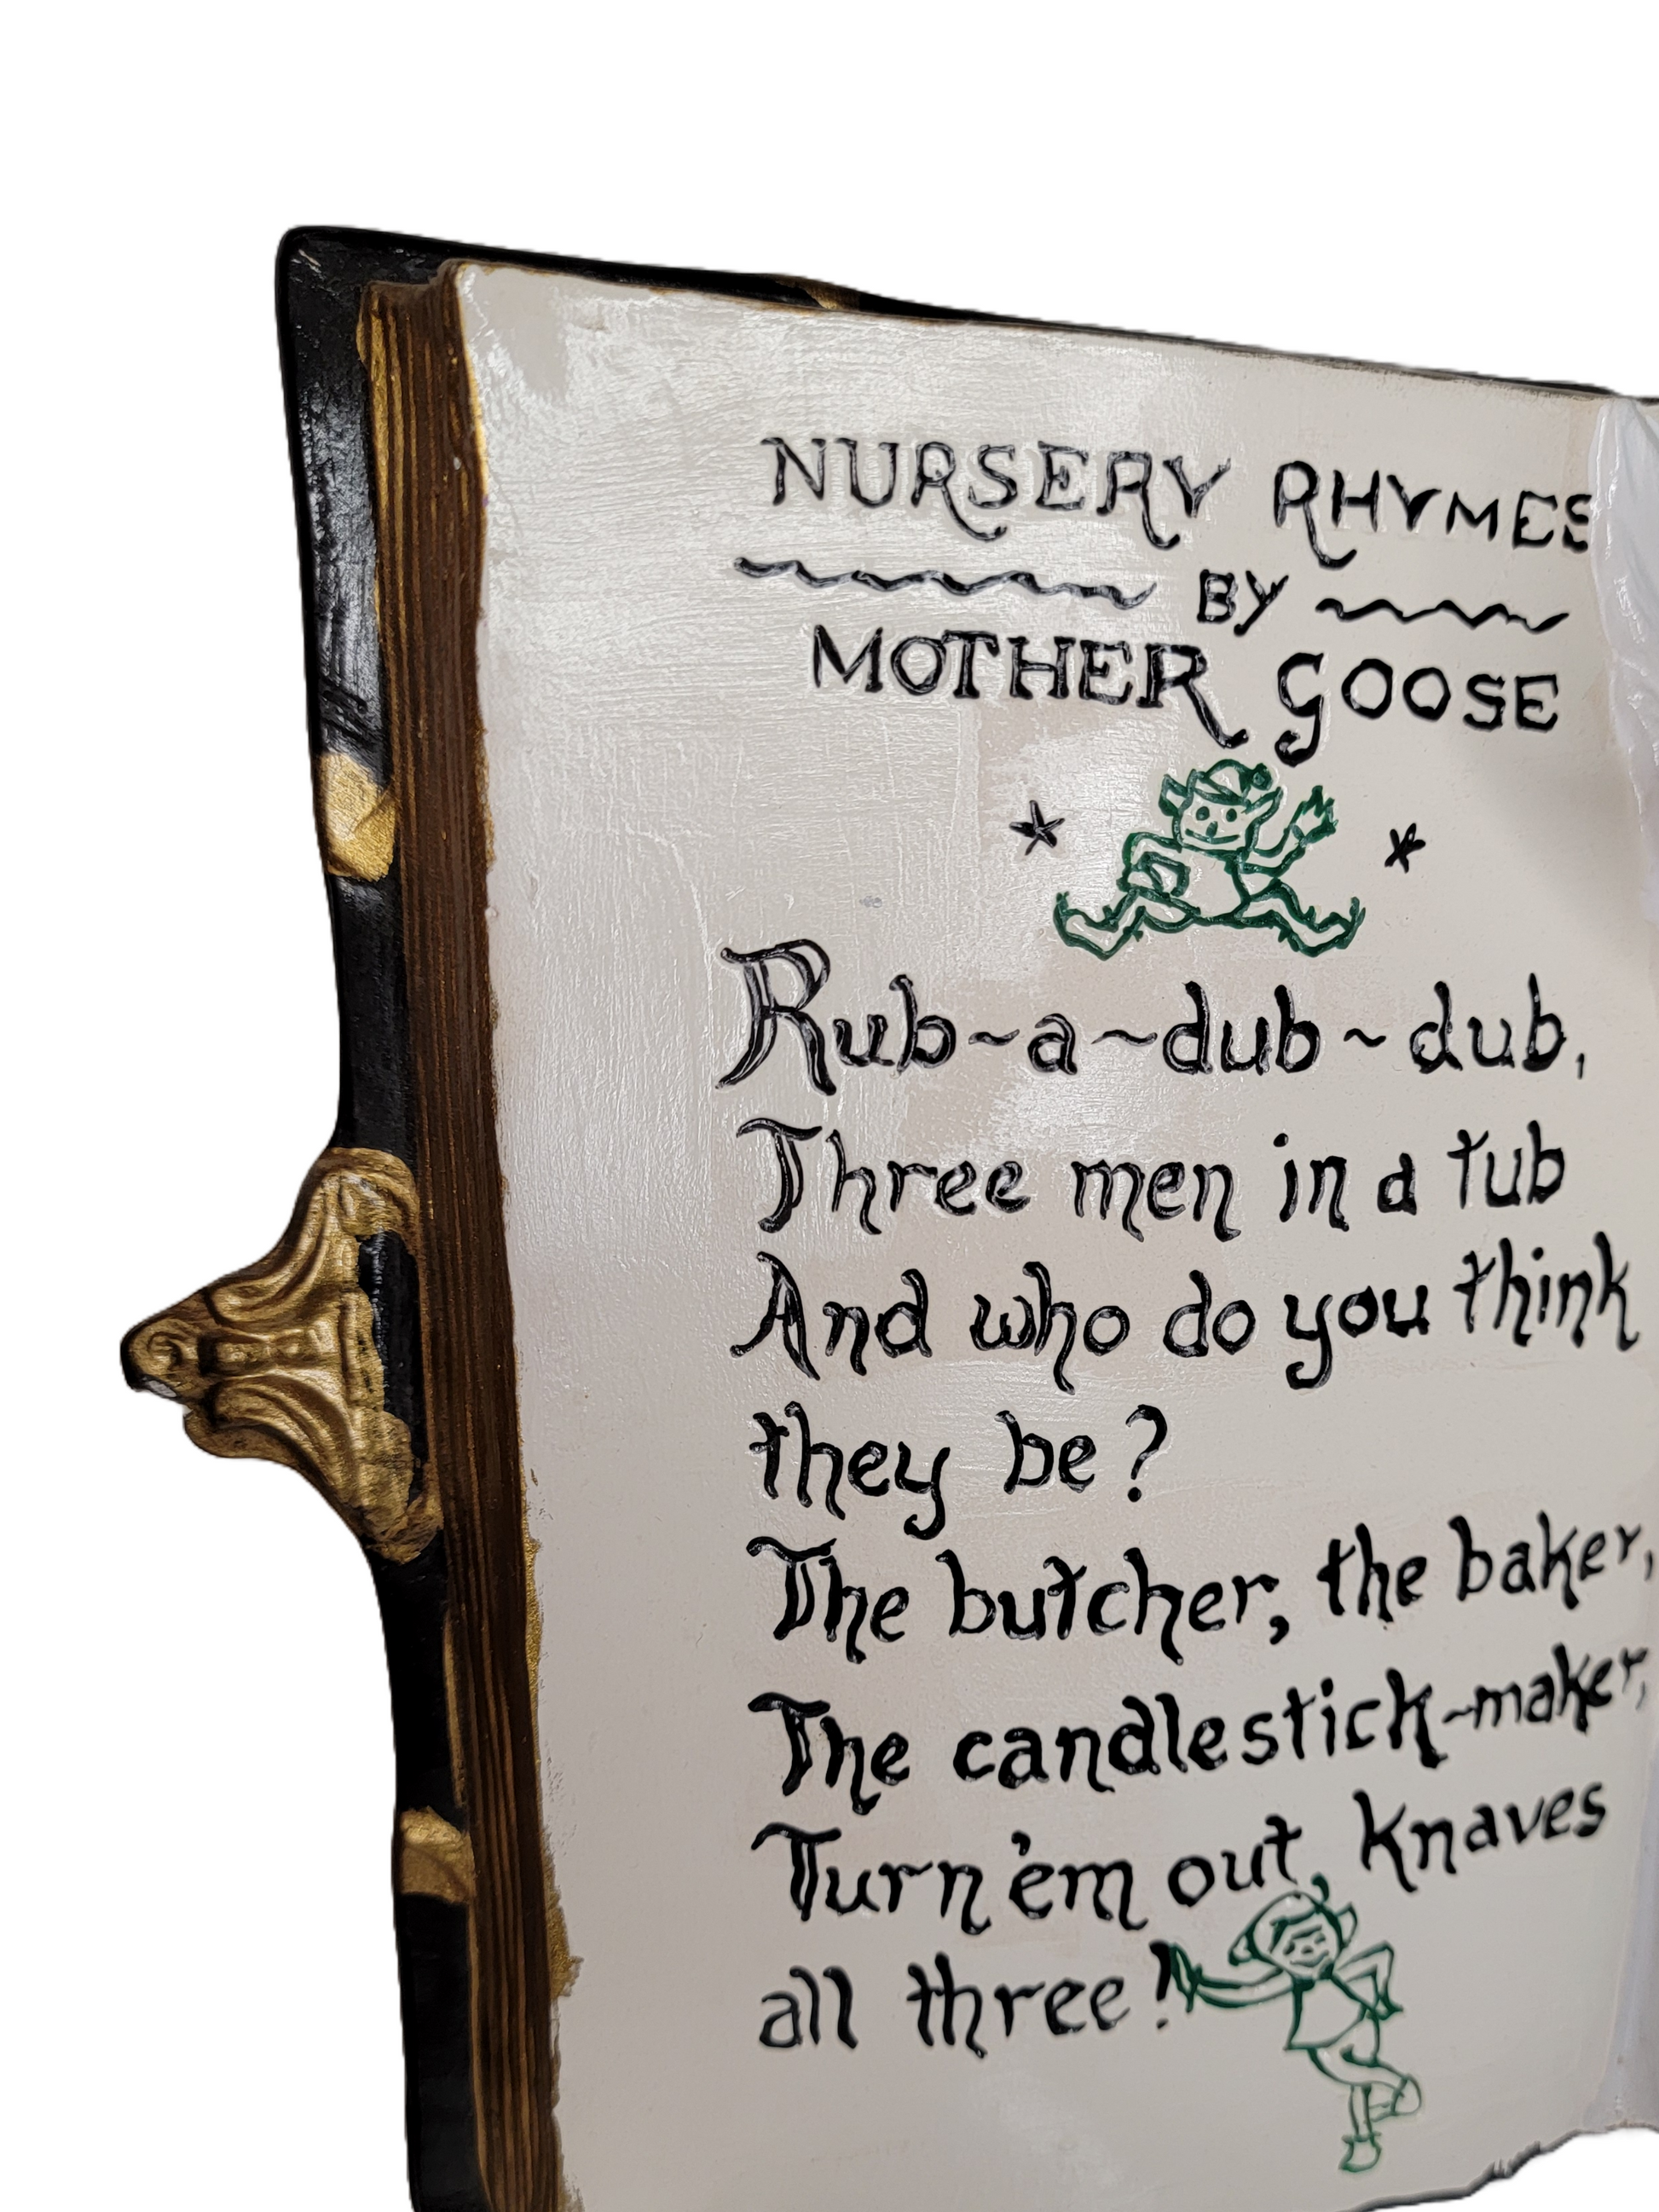 NURSERY RHYMES
BY
MOTHER GOOSE
Rub~a~dub~dub,
Three men in a tub
And who do you think
they be?
The butcher, the baker,
The candlestick-maker,
Turn 'em out, knaves
all three!